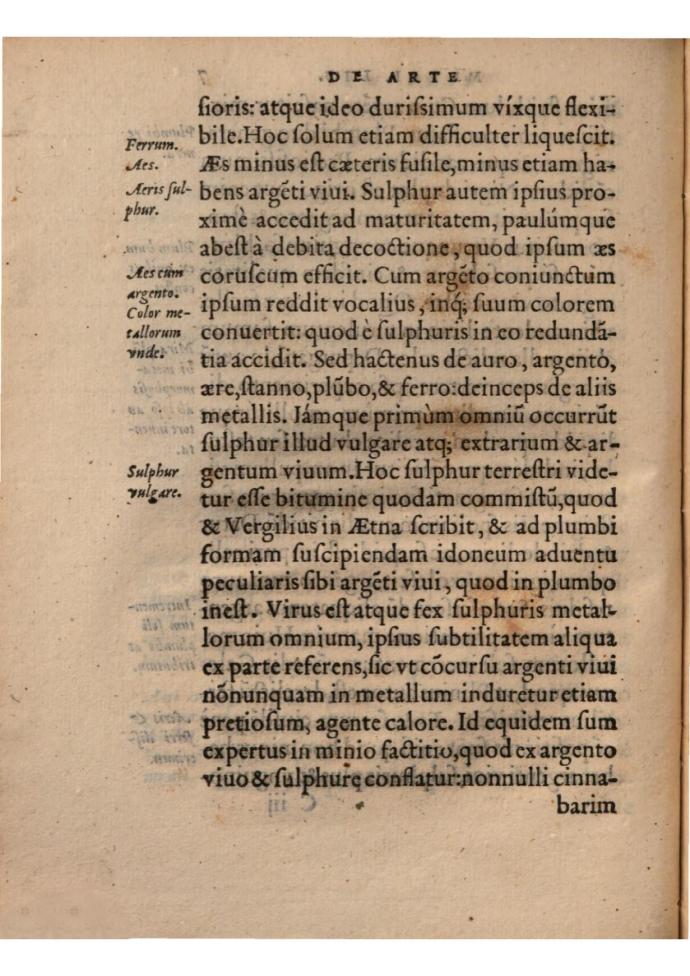 DE ARTE
ſioris: atque ideo duriſsimum víxque flexi-
bile. Hoc ſolum etiam difficulter liqueſcit.
Ferrum.
Æs minus eſt cæteris fuſile, minus etiam ha-
Aes.
bens argẽti viui. Sulphur autem ipſius pro-
Aeris ſul-
phur.
ximè accedit ad maturitatem, paulúmque
abeſt à debita decoctione, quod ipſum æs
coruſcum efficit. Cum argẽto coniunctum
Aes cum
argento.
ipſum reddit vocalius, inq; ſuum colorem
Color me-
tallorum
vnde.
conuertit: quod è ſulphuris in eo redundã-
tia accidit. Sed hactenus de auro, argento,
ære, ſtanno, plũbo, & ferro: deinceps de aliis
metallis. Iámque primùm omniũ occurrũt
ſulphur illud vulgare atq; extrarium & ar-
gentum viuum. Hoc ſulphur terreſtri vide-
Sulphur
vulgare.
tur eſſe bitumine quodam commiſtũ, quod
& Vergilius in Ætna ſcribit, & ad plumbi
formam ſuſcipiendam idoneum aduentu
peculiaris ſibi argẽti viui, quod in plumbo
ineſt. Virus eſt atque fex ſulphuris metal-
lorum omnium, ipſius ſubtilitatem aliqua
ex parte referens, ſic vt cõcurſu argenti viui
nõnunquam in metallum induretur etiam
pretioſum, agente calore. Id equidem ſum
expertus in minio factitio, quod ex argento
viuo & ſulphure conflatur: nonnulli cinna-
barim